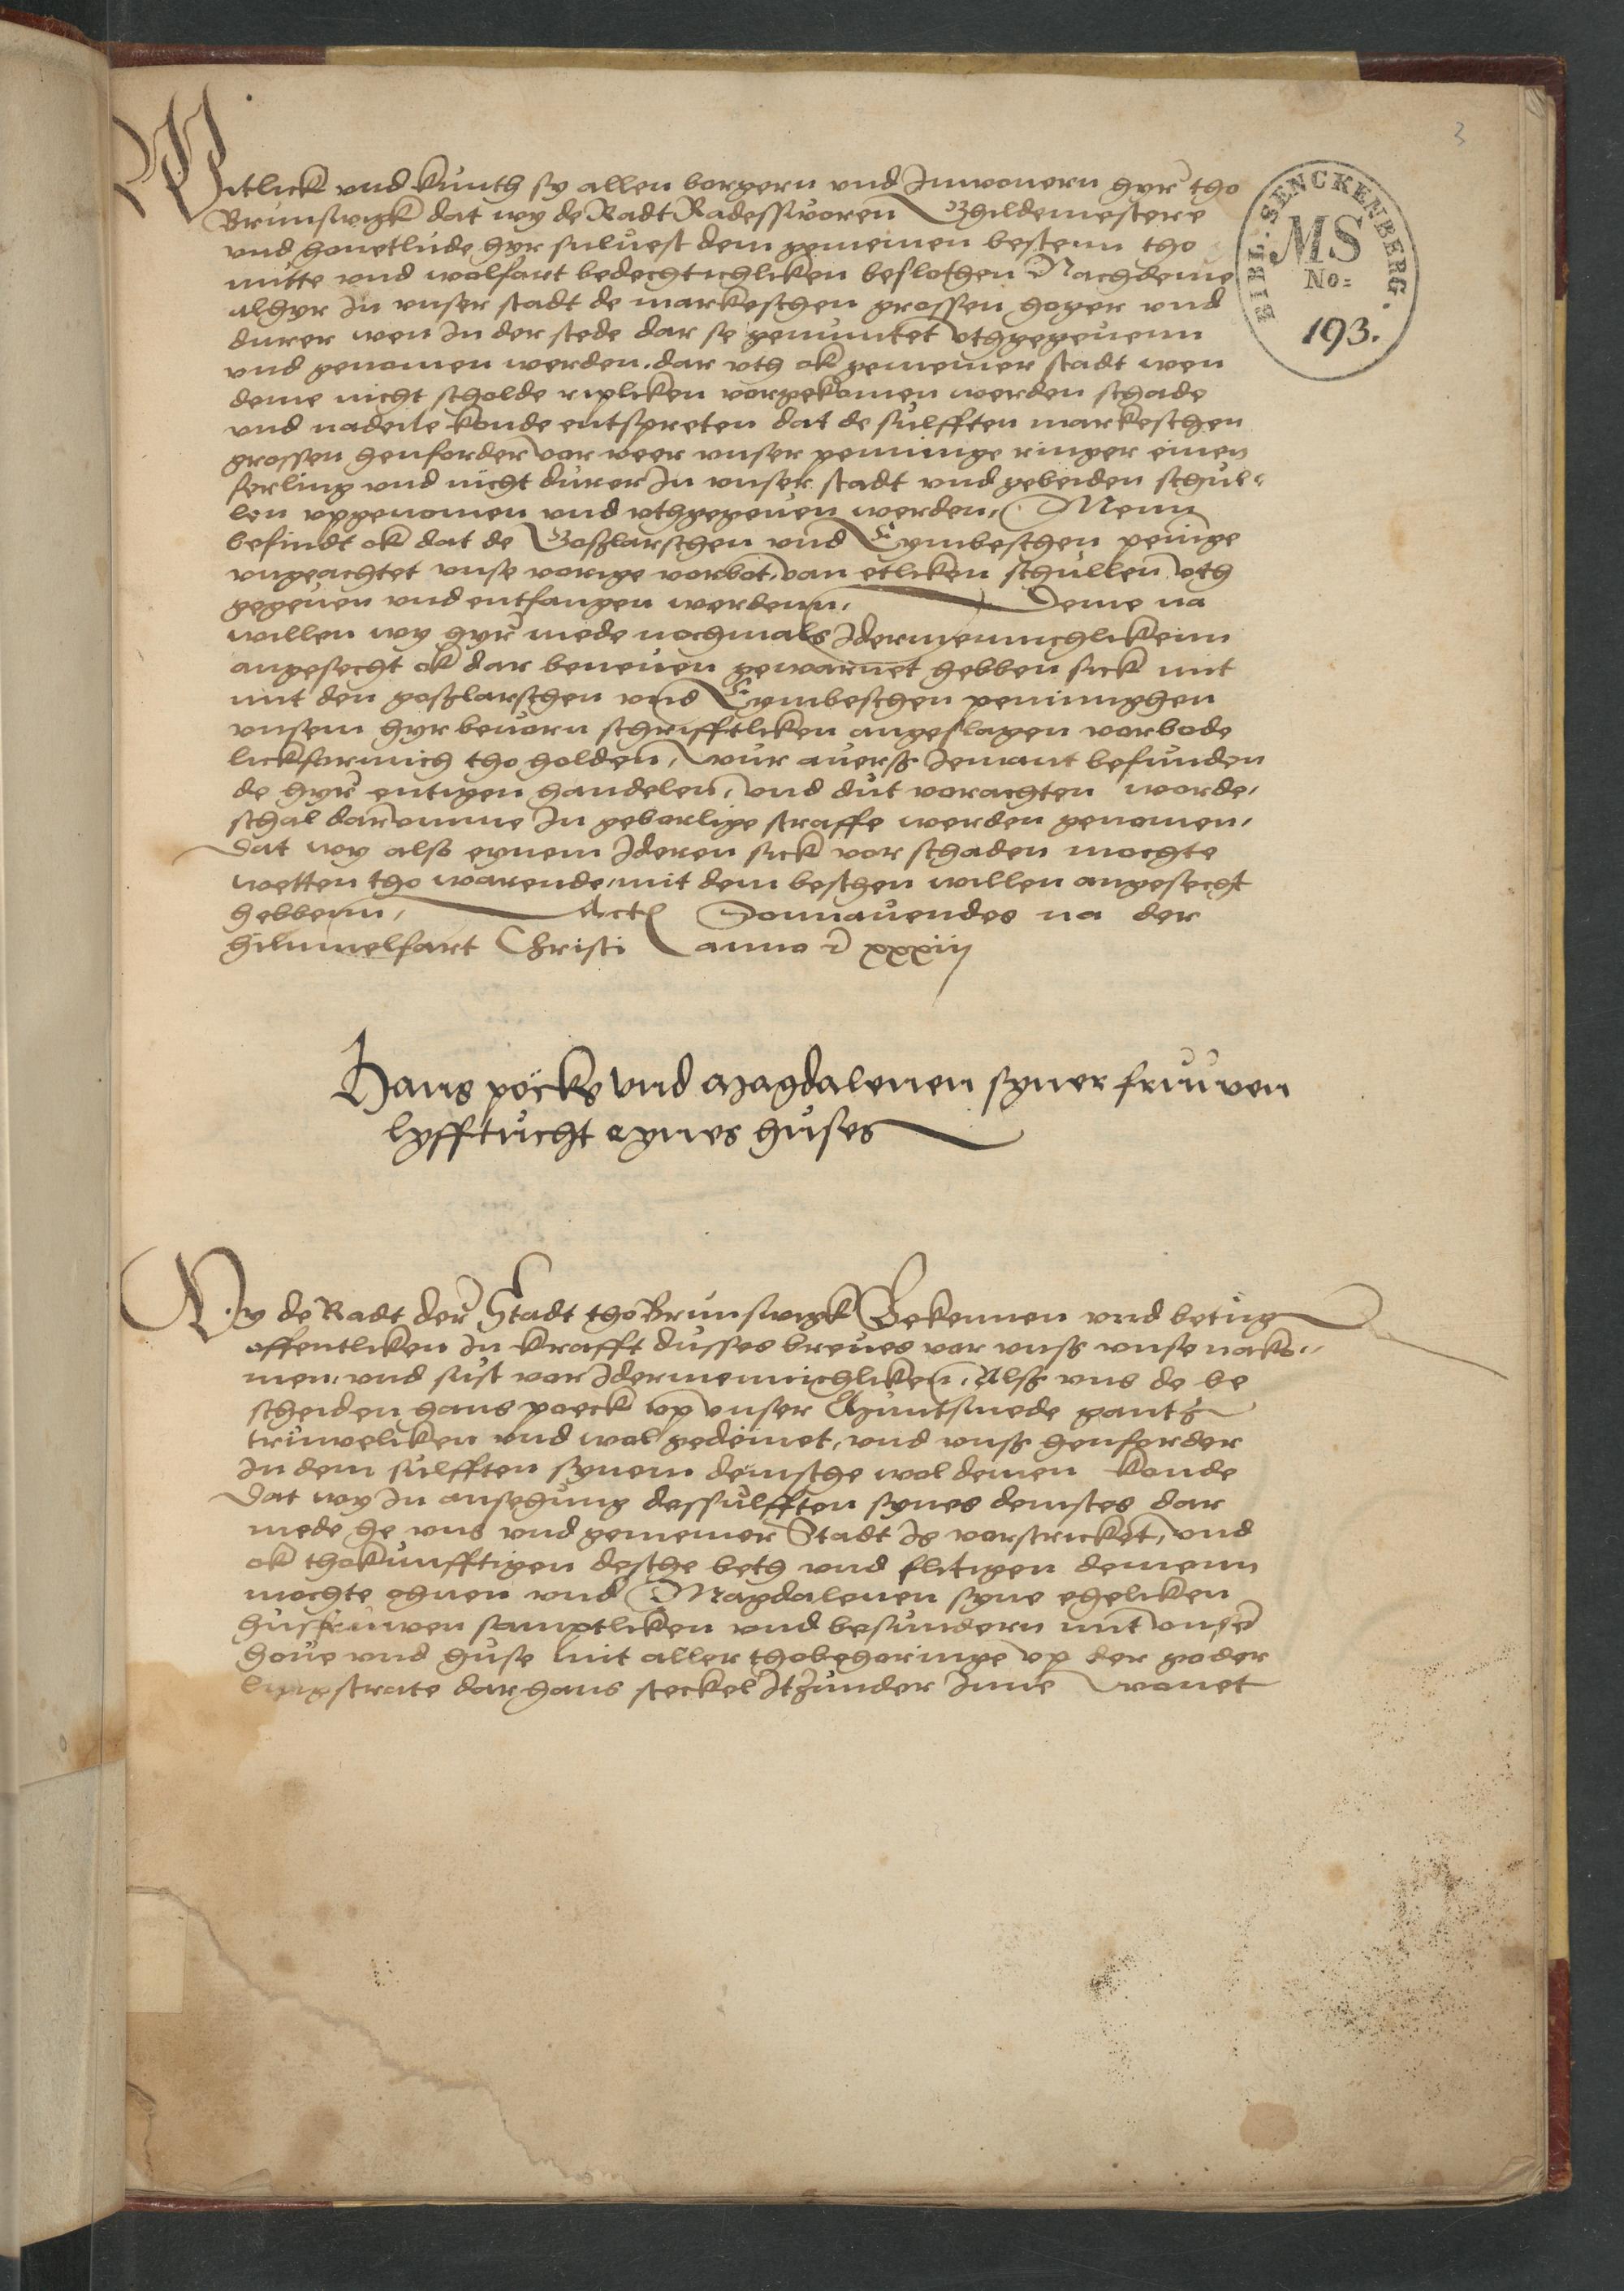 3
BIBL. SENCKENBERG.
MS
No=
193.
Witlick vnd kunth sy allen borgern vnd Inwonern hyr tho
Brunswigk dat wy de Radt Radessworen Ghildemestere
vnd houetlude hyr suluest dem gemeinen bestenn tho
nutte vnd wolfart bedechtichliken beslothen Nachdeme
alhyr In vnser stadt de markeschen grossen hoger vnd
durer wen In der stede dar se gemuntet vthgegeuenn
vnd genomen werden. dar vth ok gemeiner stadt wen
deme nicht scholde ripliken vorgekomen werden schade
vnd nadeile konde entspreten dat de sulfften markeschen
grossen henforder vor veer vnser penninge ringer einen
ferling vnd nicht durer In vnser stadt vnd gebeiden schul-
len vpgenomen vnd vthgegeuen werden, Menn
befindt ok dat de Goßlarschen vnd Eymbeschen penige
vngeachtet vnse vorige vorbot, van etliken schullen vth
gegeuen vnd entfangen werdenn, Deme na
willen wy hyr mede nochmals Idermennichlikenn
angesecht ok dar beneuen gewarnet hebben sick mit
mit den goßlarschen vnd Eymbeschen penninghen
vnsem hyr beuorn schrifftliken angeslagen vorbode
lickformich tho holden, wur auerß Iemant befunden
de hyr entigen handelen, vnd dut vorachten worde,
schal daromme In geborlige straffe werden genomen,
Dat wy also eynem Ideren sick vor schaden mochte
wetten tho warende, mit dem besthen willen angesecht
hebbenn, Act Sonnauendes na der
hilmmelfart Christi anno xxxiiij
Hans pöcks vnd Magdalenen syner fruwen
lyfftucht eynes huses
Wy de Radt der Stadt tho Brunswigk Bekennen vnd betug
offentliken In krafft dusses breues vor vnß vnse nako-
men, vnd sust vor Idermennichliken, Alß vns de be
scheiden hans poeck vp vnser Muntsmede gantz
truweliken vnd wol gedeinet, vnd vnß henforder
In dem sulfften synem deinsthe wol deinen konde
Dat wy In ansehung dessulfften synes deinstes dar
mede he vns vnd gemeiner Stadt Is vorstricket, vnd
ok thokunfftigen desthe beth vnd flitigen deinenn
mochte ohnen vnd Magdalenen syne eheliken
husfruwen samptliken vnd besundern mit vnse
houe vnd huse mit aller thobehoringe vp der goder
lingstrate dar hans steckel Itzunder Inne wonet